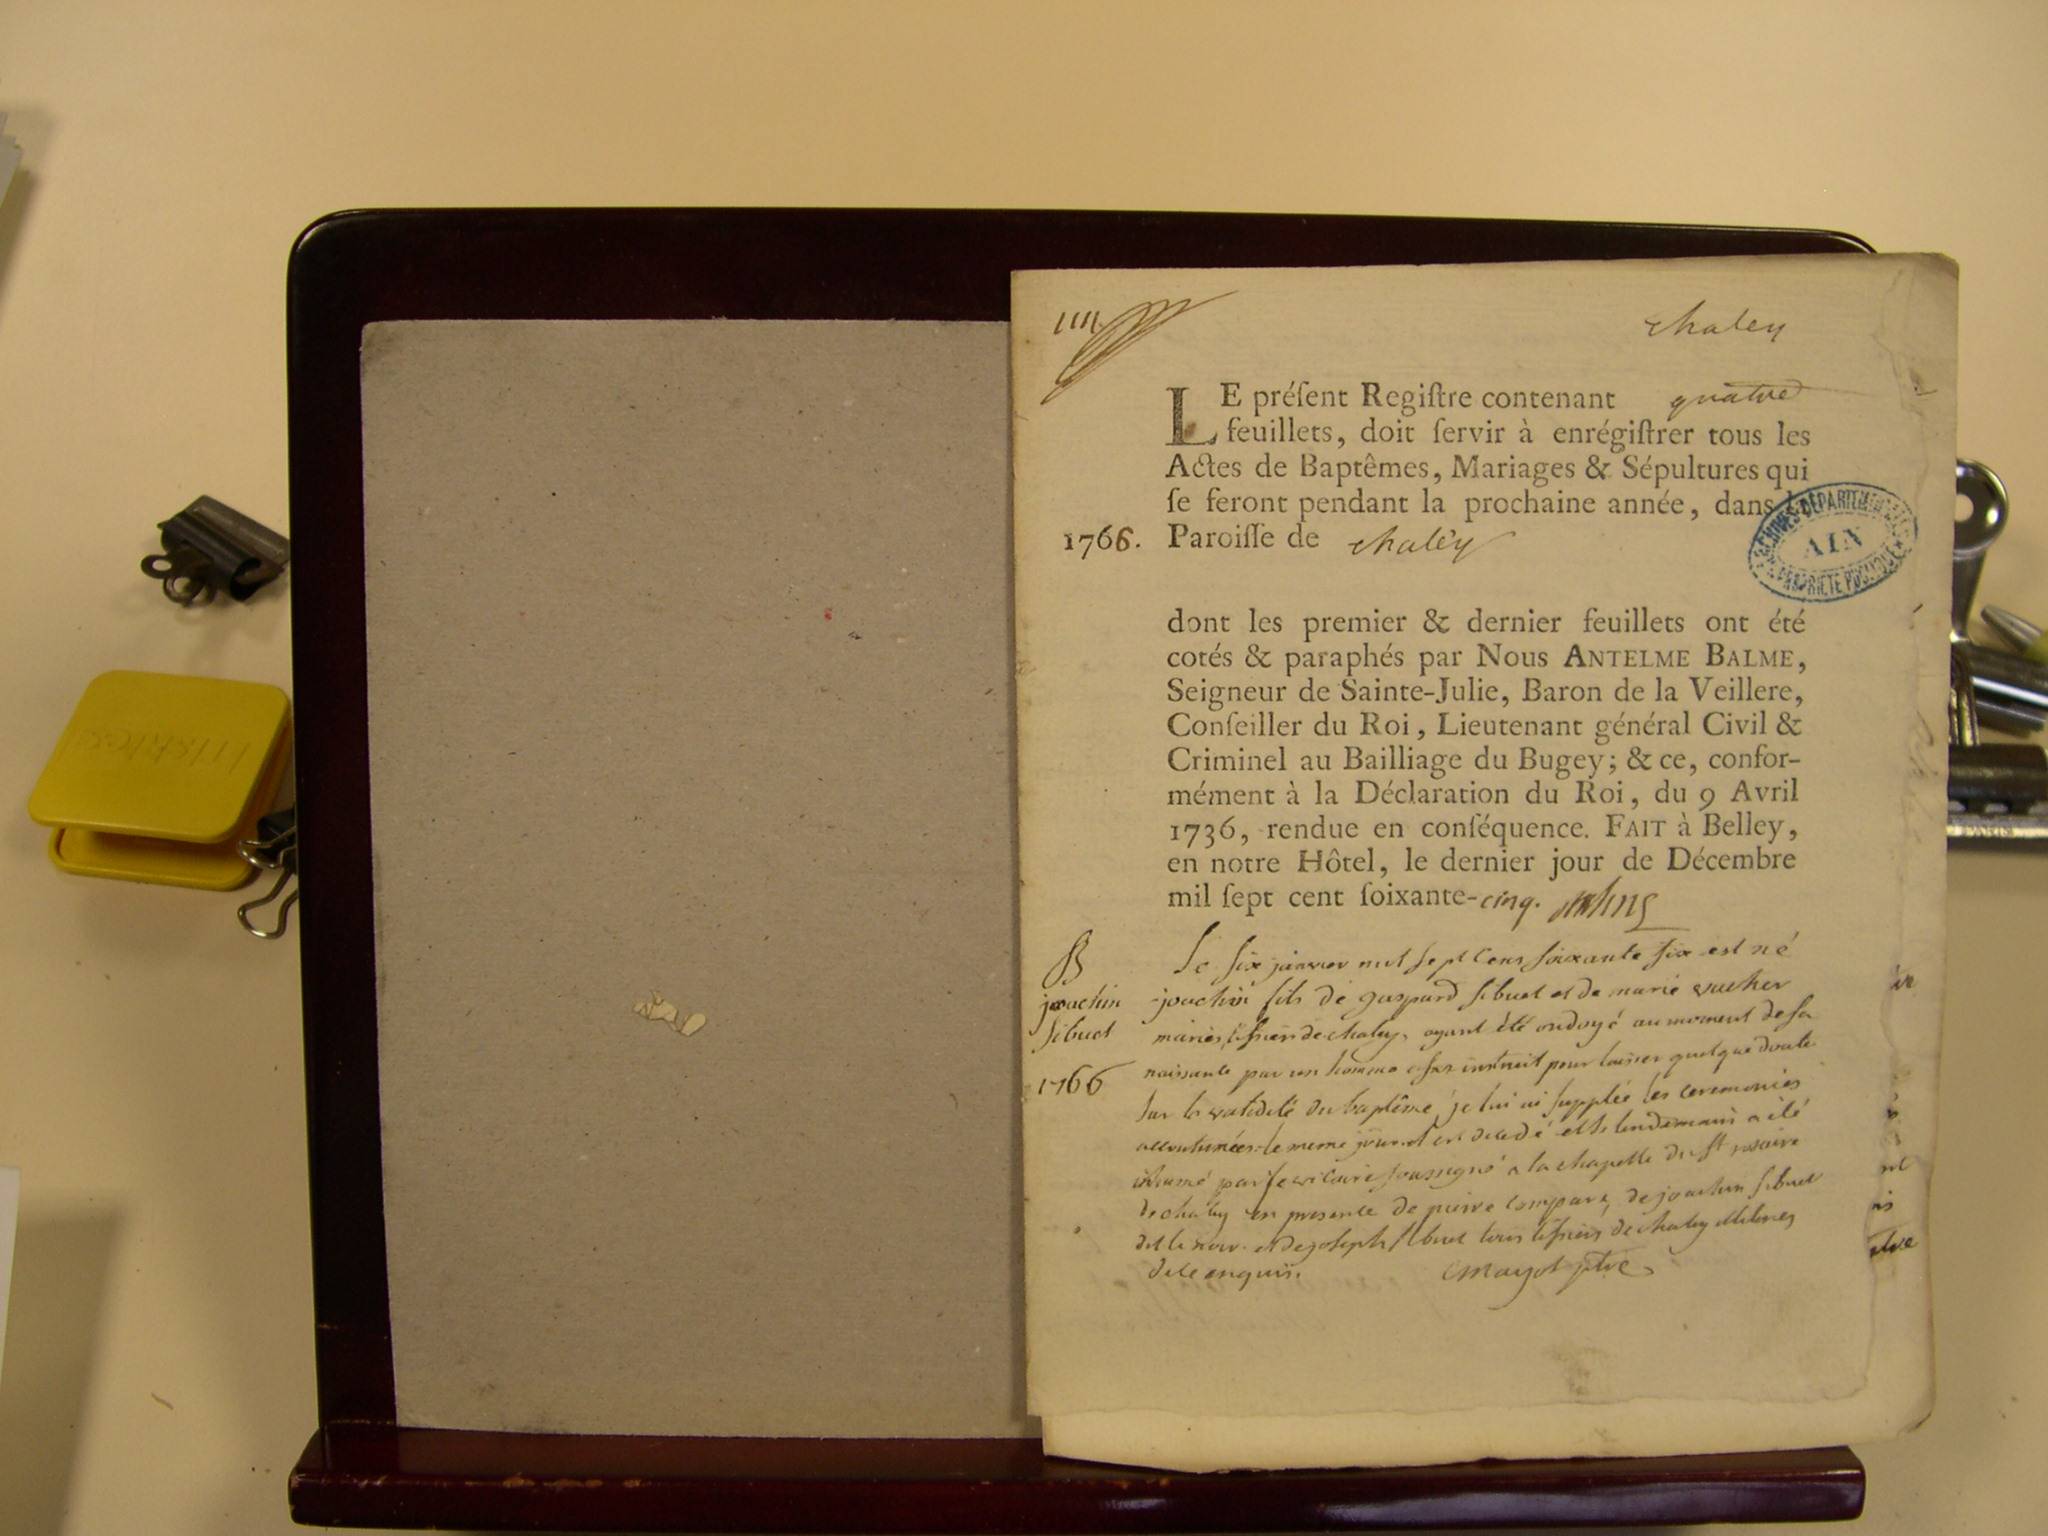 chaley
LE préſent Regiſtre contenant quatre
feuillets, doit ſervir à enrégiſtrer tous les
Actes de Baptêmes, Mariages & Sépultures qui
ſe feront pendant la prochaine année, dans la
1766. Paroiſſe de chaley
ARCHIVES DÉPARTEMENTALES
AIN
PROPRIÉTÉ PUBLIQUE
dont les premier & dernier feuillets ont été
cotés & paraphés par Nous ANTELME BALME,
Seigneur de Sainte-Julie, Baron de la Veillere,
Conſeiller du Roi, Lieutenant général Civil &
Criminel au Bailliage du Bugey; & ce, confor-
mément à la Déclaration du Roi, du 9 Avril
1736, rendue en conſéquence. FAIT à Belley,
en notre Hôtel, le dernier jour de Décembre
mil ſept cent ſoixante-cinq.
B
joachin
sibuet
1766
Le six janvier mil sept cens soixante six est né
joachin fils de gaspard sibuet et de marie vucher
mariés de chaley, ayant été ondoyé au moment de sa
naissance par un homme instruit pour laisser quelque doute
sur la validité du baptême je lui ai supplée les ceremonies
accoutumées. le meme jour est decedé et le lendemain a été
inhumé par je vicaire soussigné a la chapelle du st rosaire
de chaley en presence de pierre compare, de joachin sibuet
dit le noir et de joseph sibuet tous de chaley illitérés
de ce enquis. Mayot ptre